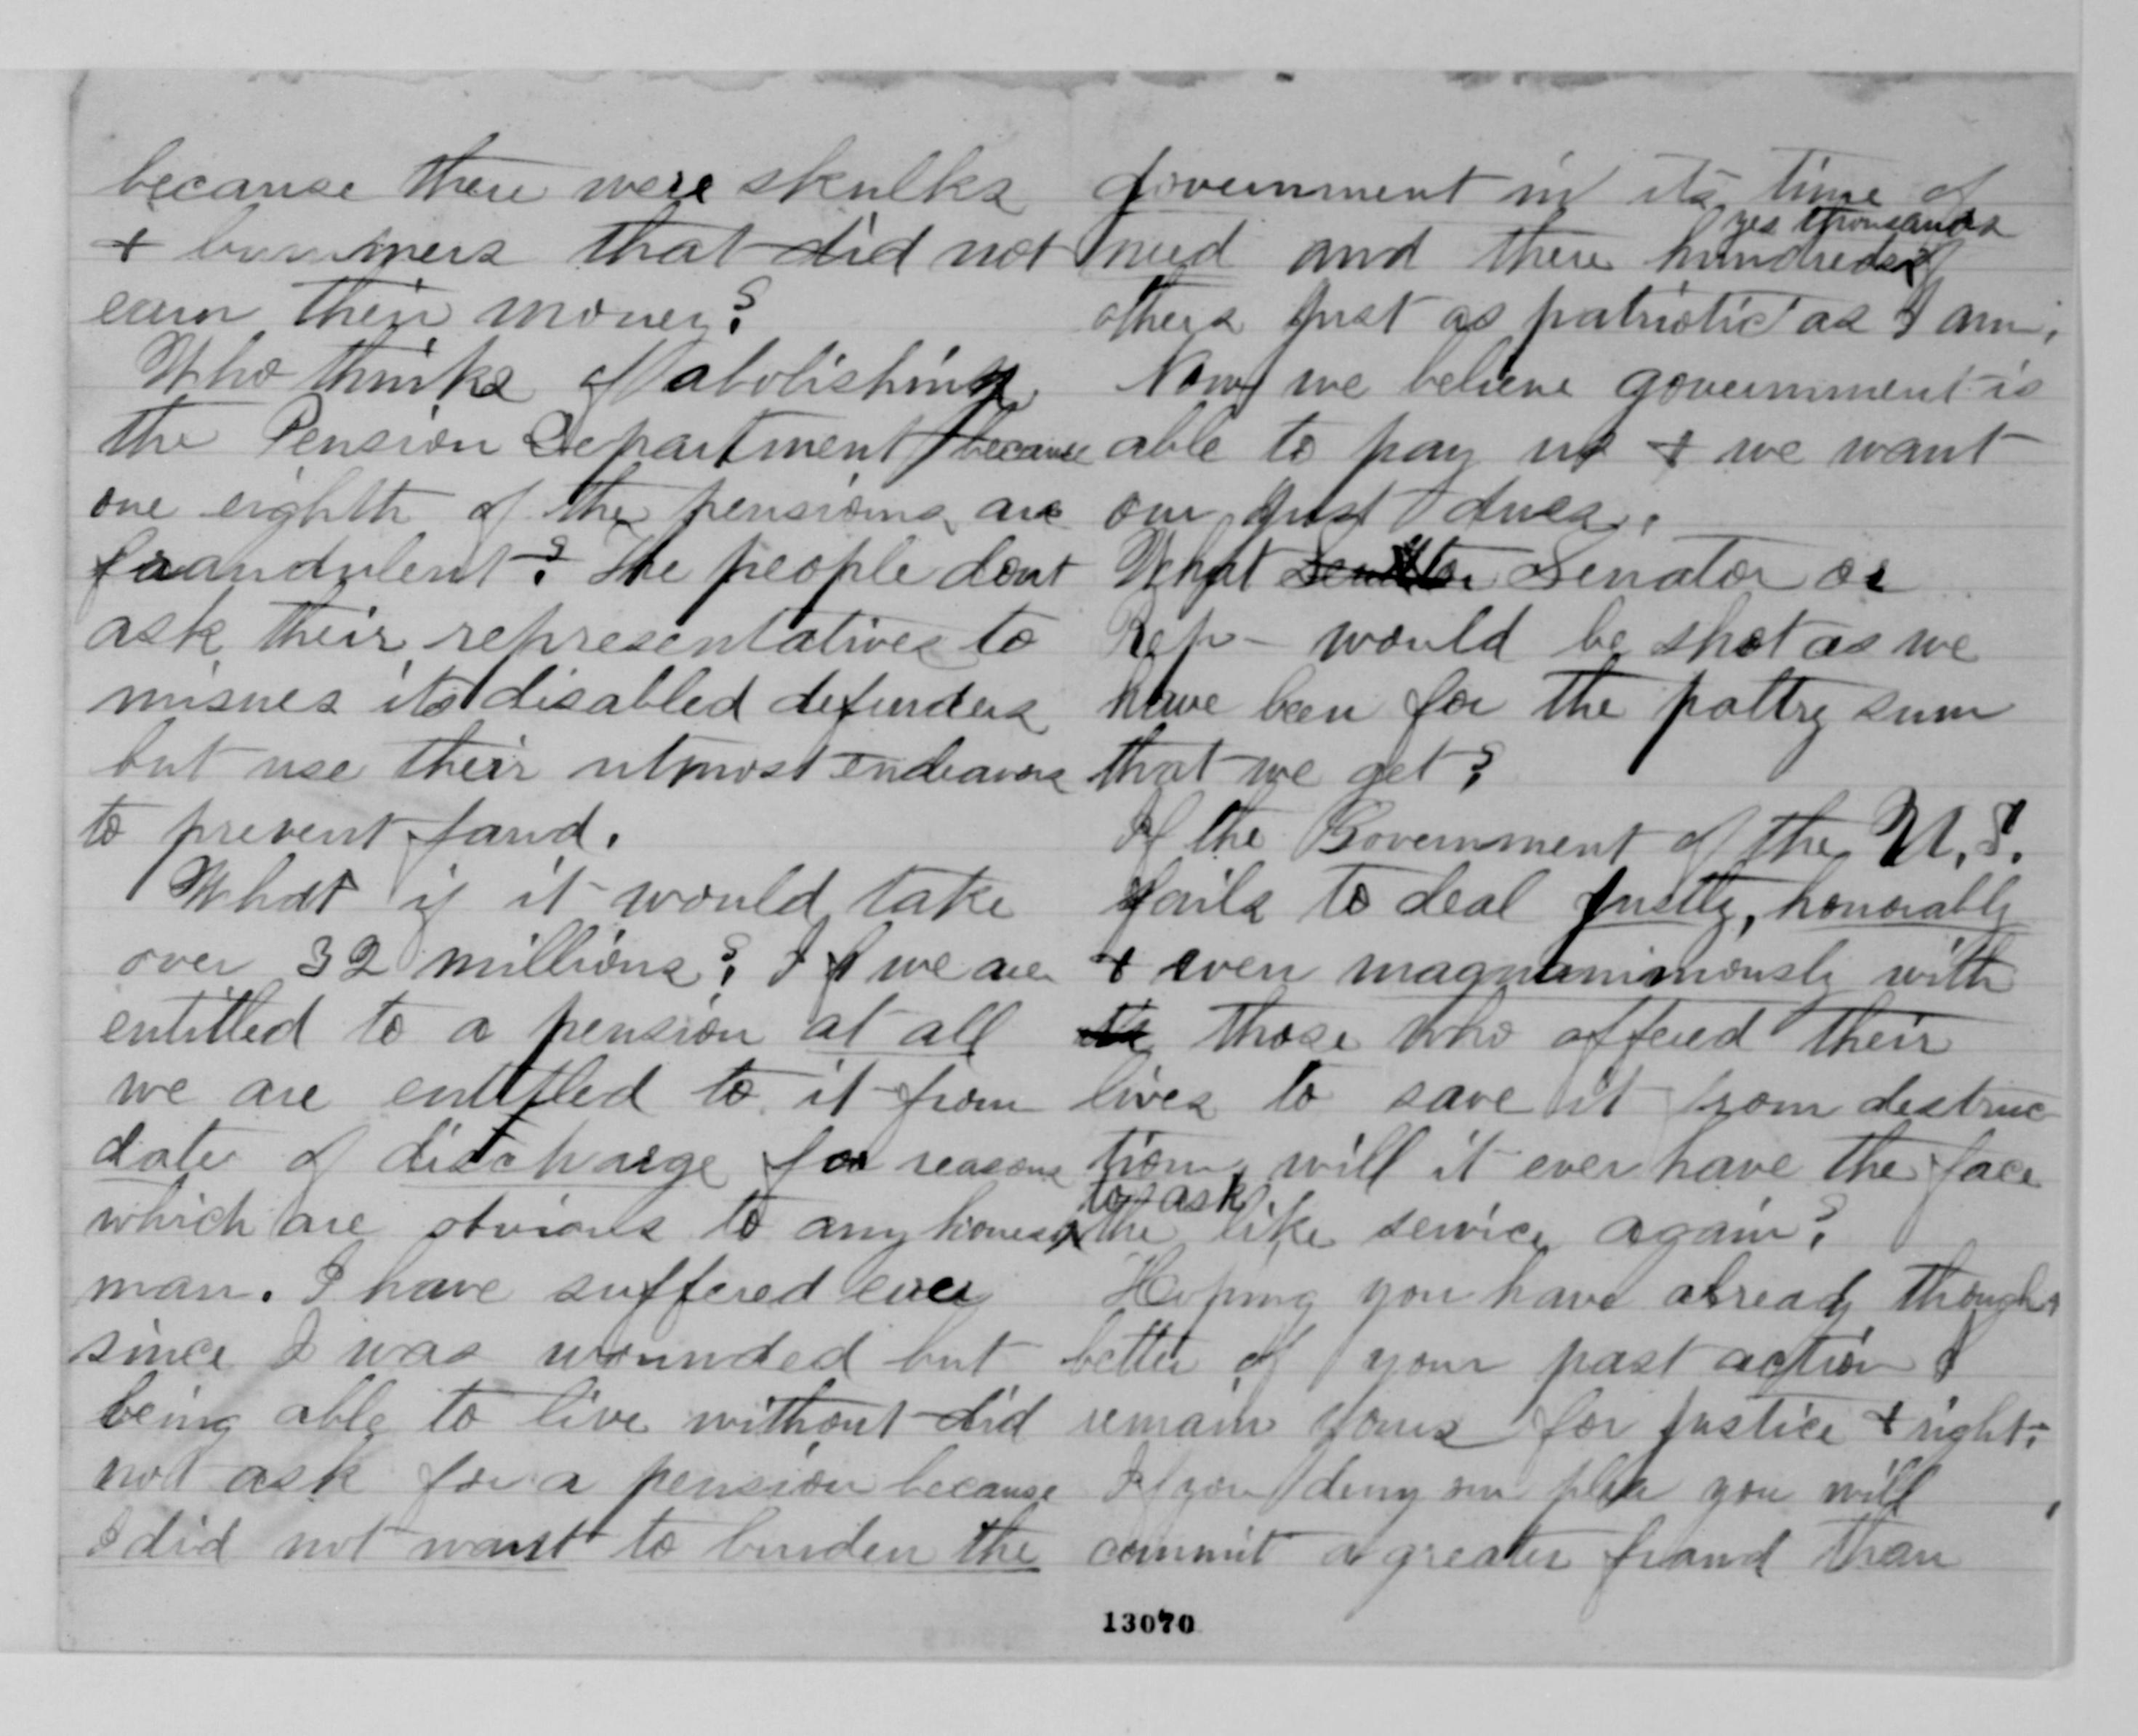 because there were skulks
+ bummers that did not
earn their money?
Who thinks of abolishing
the Pension Department because
one eighth of the pensions are
fraudulent? The people dont
ask their representatives to
misues its disabled defenders
but use their utmost endeavors
to prevent faud.
What if it would take
over 32 millions? If we are
entitled to a pension at all
we are entitled to it from
date of discharge for reasons
which are obvious to any honest
man. I have suffered ever
since I was wounded but
being able to live without did
not ask for a pension because
I did not want to burden the
Government in its time of
need and there hundreds yes thousands of
others just as patriotic as I am.
Now we believe government is
able to pay us + we want
our just dues.
What Senator Senator or
Rep - would be shot as we
have been for the paltry sum
that we get?
If the Government of the U.S.
fails to deal justly, honorably
+ even magnanimously with
its those who offered their
lives to save it from destruc
tion, will it ever have the face
to ask the like service again?
Hoping you have already thought
better of your past action I
remain yours for justice + right.
If you deny our plea you will
commit a greater fraud than
13070